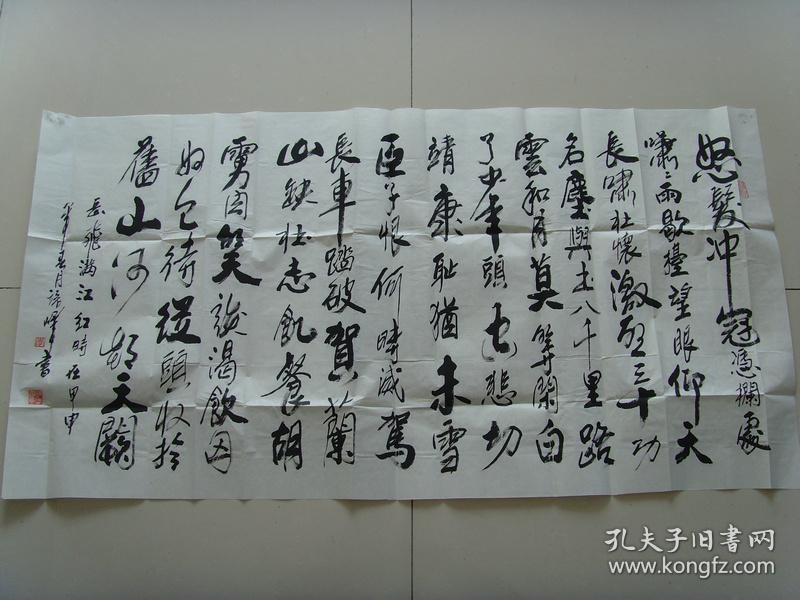 怒髮冲冠憑攔處
瀟〻雨歇擡望眼仰天
長嘯壯懷激烈三十功
名塵與土八千里路
雲和月莫等閑白
了少年頭空悲切
靖康耻猶未雪
臣子恨何時滅駕
長車踏破賀蘭
山缺壯志飢餐胡
虜肉笑談渴飲匈
奴血待從頭收拾
舊山河朝天闕
岳飛滿江紅時在甲申
年春月書
孔夫子旧书网
www.kongfz.com